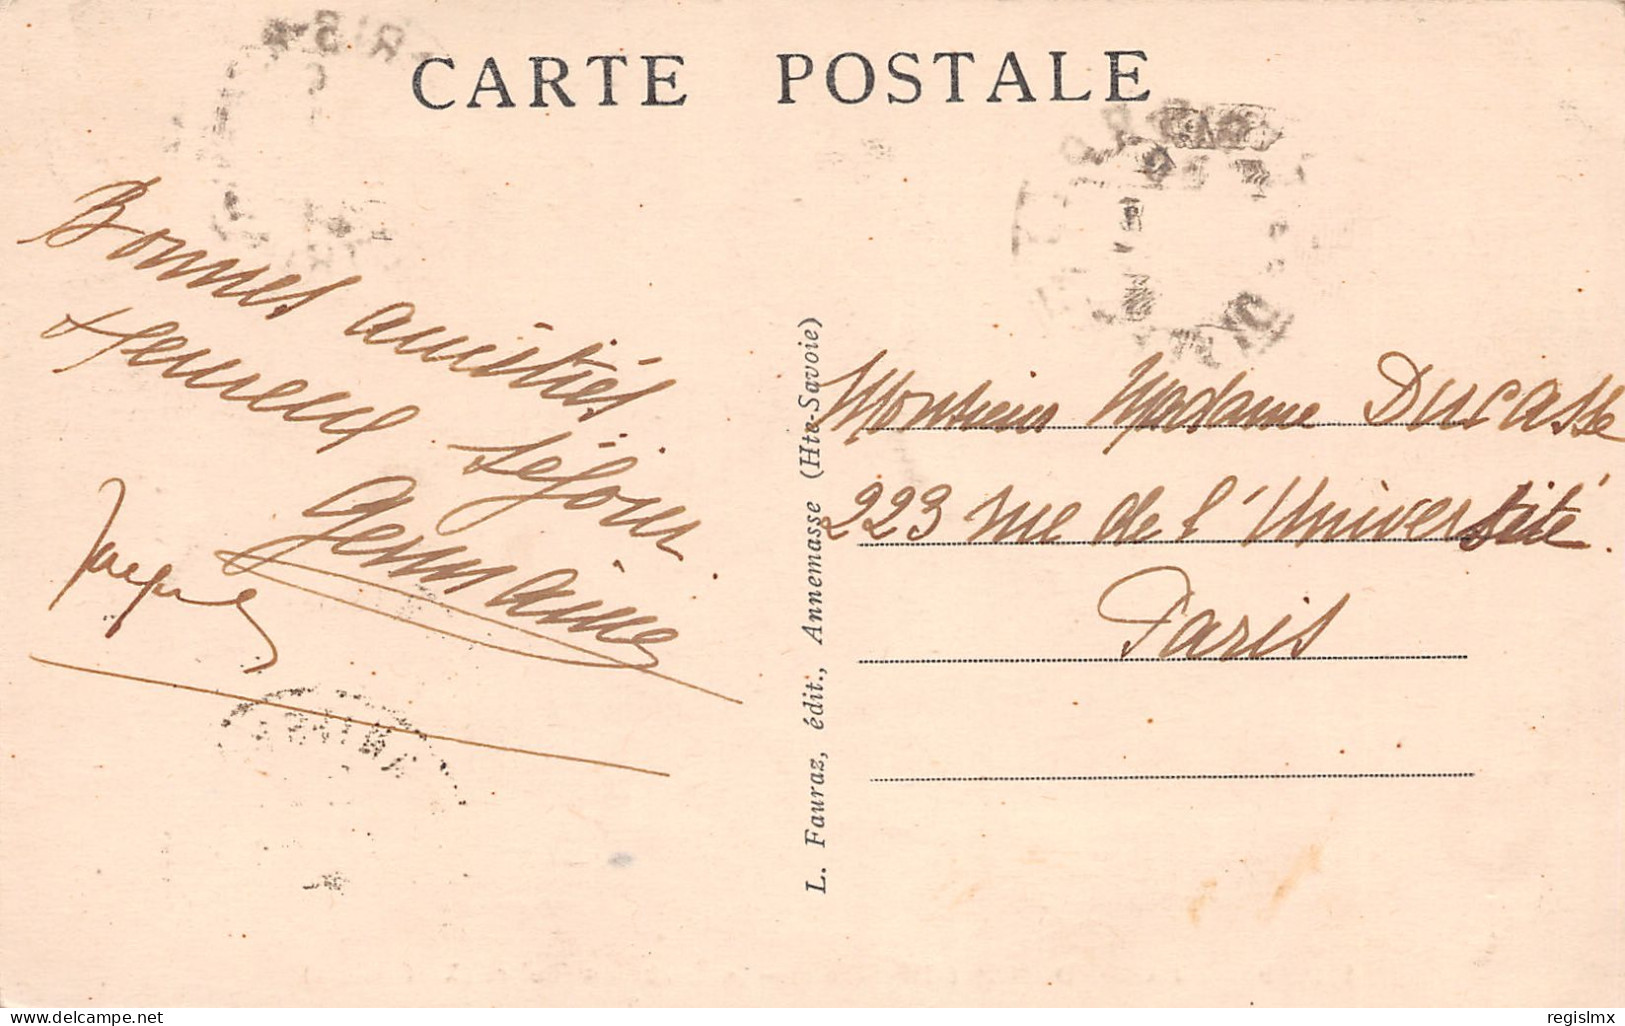 CARTE POSTALE
Bonnes amitiés
heureux séjour
Germaine
Jacques
L. Fauraz, édit., Annemasse (Hte-Savoie)
Monsieur Madame Ducasse
223 rue de l'Université.
Paris
regislmx
www.delcampe.net